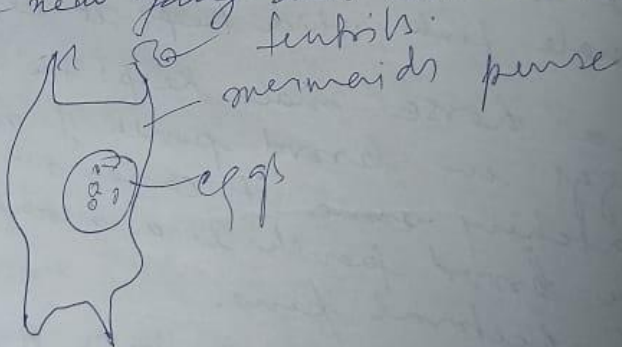 tentrils.
mermaids purse
eggs